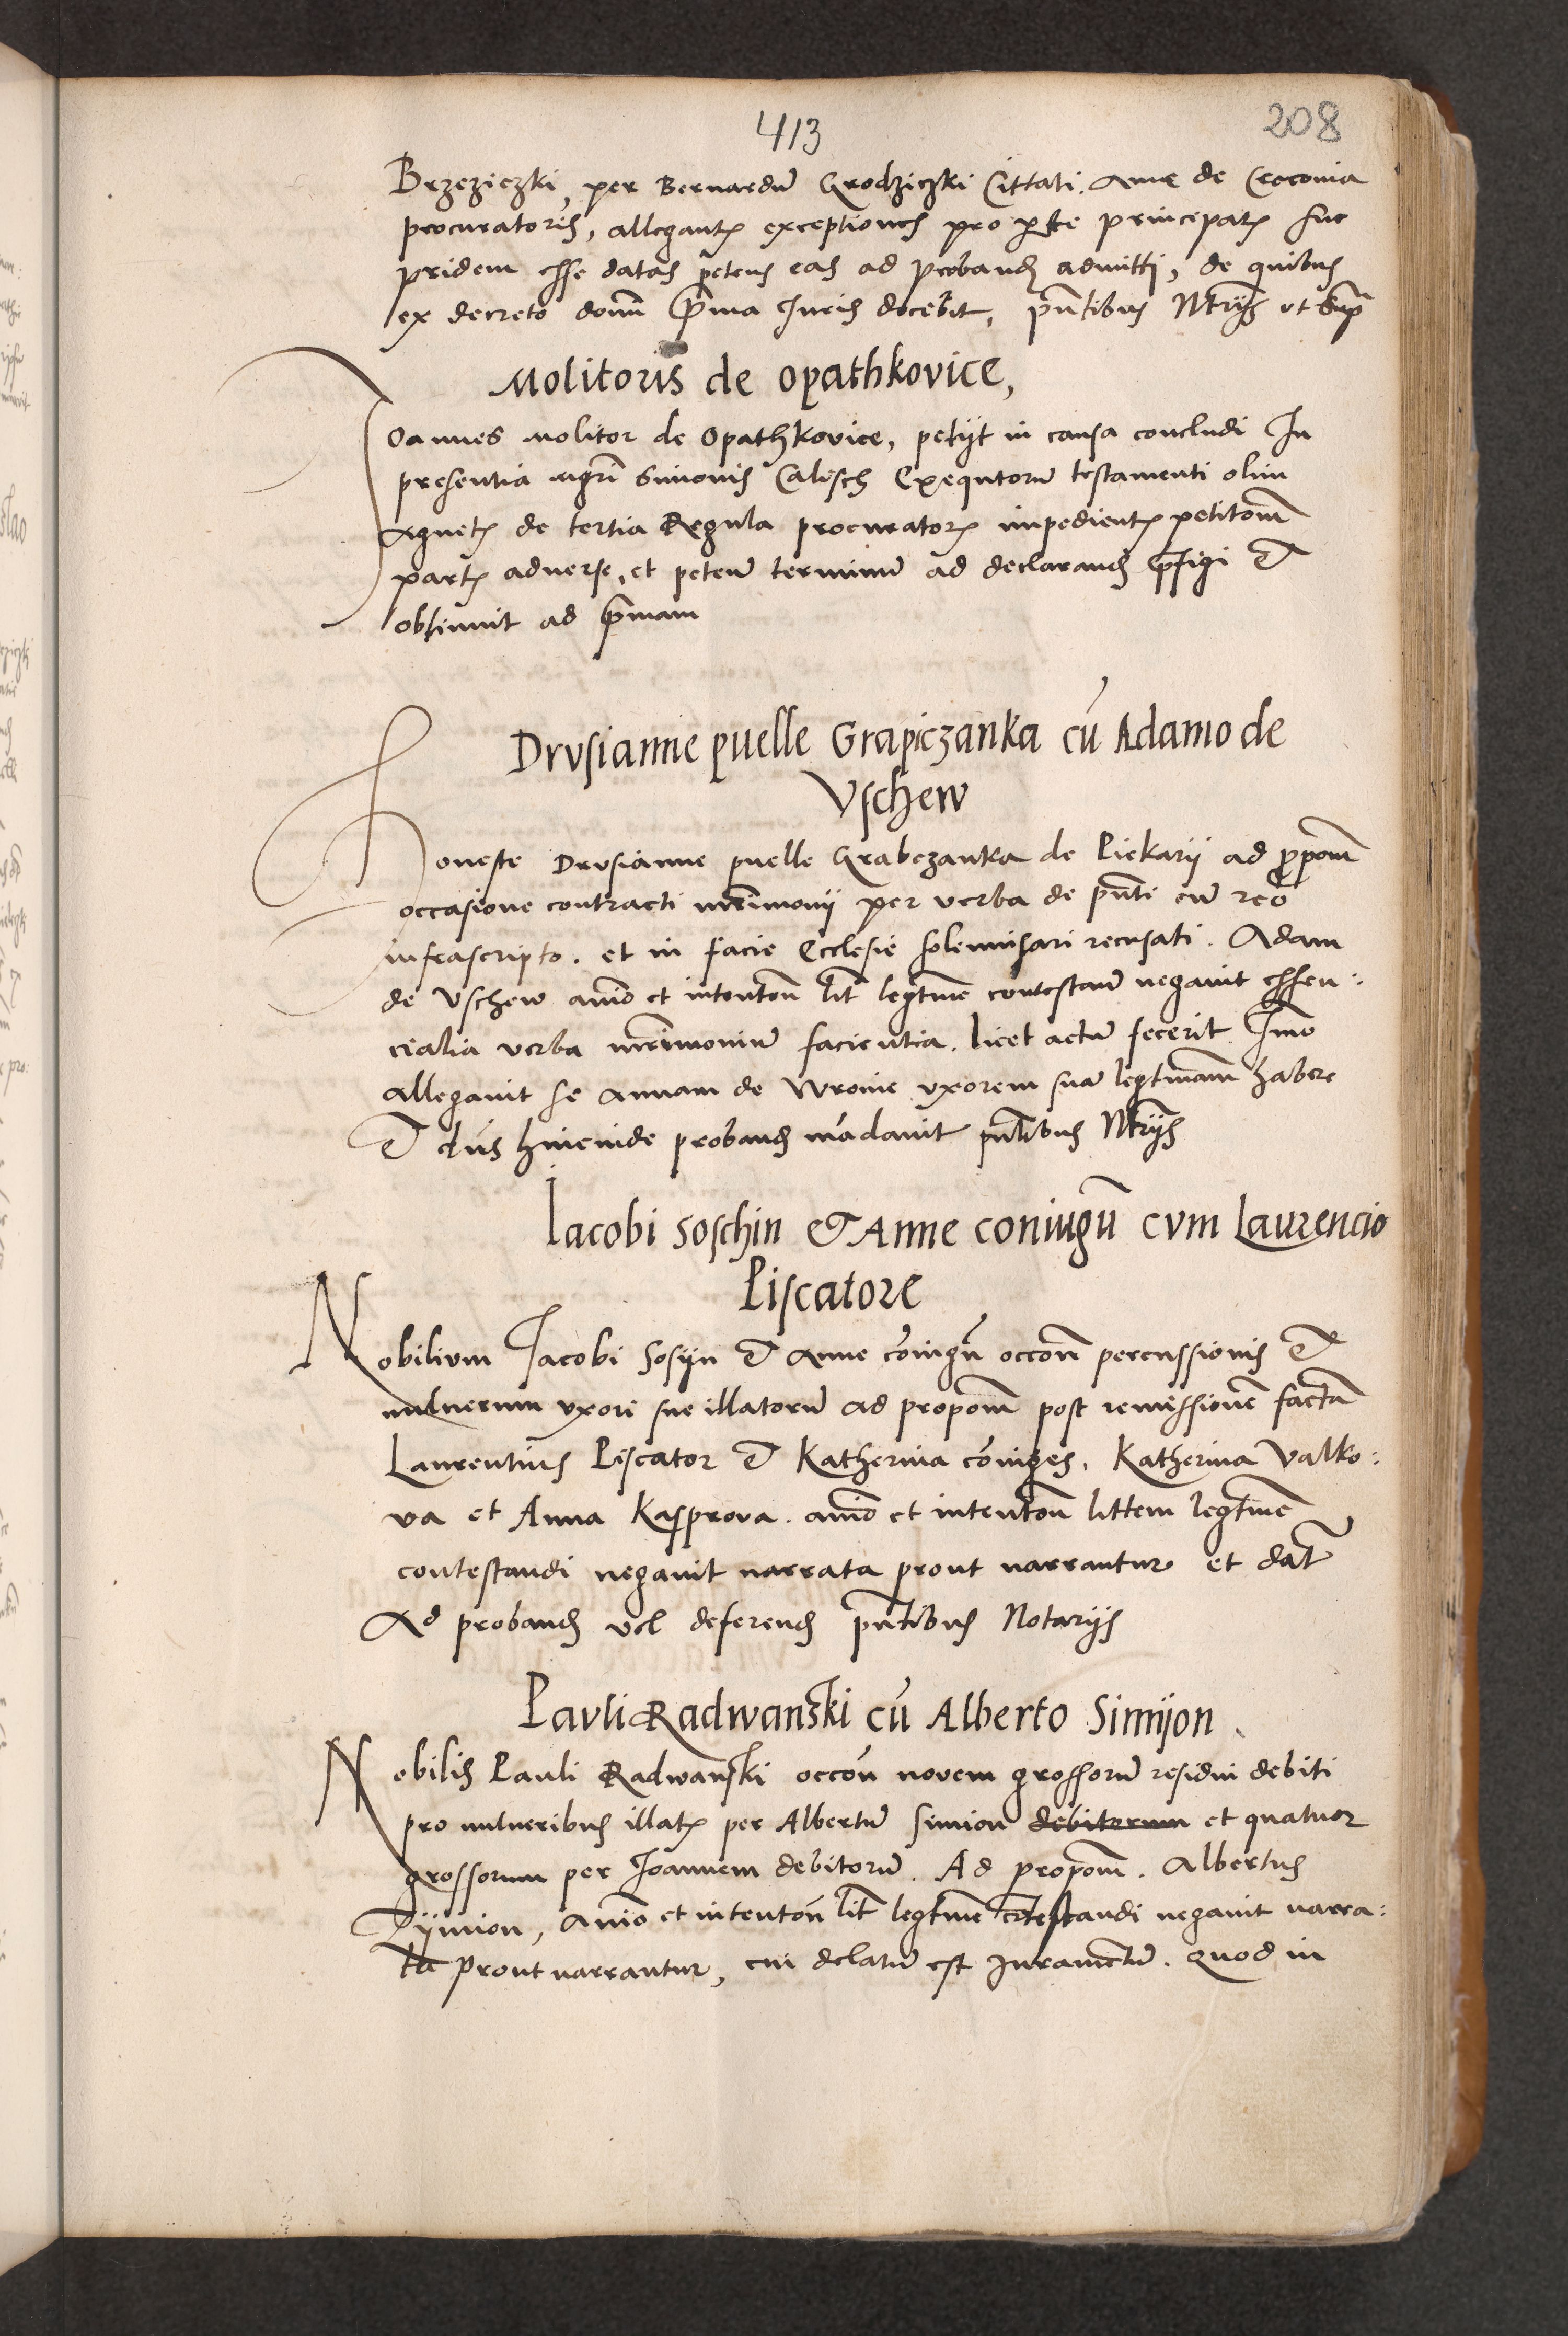 413
208
Brzeziczki, per Bernardū Grodziczki Cittati. Anne de Cracovia
procuratoris, allegantꝭ exceptiones pro pte principatꝭ sue
pridem esse datas petens eas ad probandꝭ admitti, de quibus
ex decreto domī Pma Iuris docebit, pntibus Ntrijs ut supra
Molitoris de opathkovice,
Ioannes molitor de Opathkovice, petijt in causa concludi In
presentia mgri Simonis Calisch Exequtorū testamenti olim
Agnetꝭ de tertia Regula procuratorꝭ impedientꝭ petitoēm
partꝭ adverse, et petentē terminū ad declarandꝭ pfigi et
obtinuit ad pmam
Drusianne puelle Grapiczanka cū Adamo de
Uschew
Honeste Drusianne puelle Grabczanka de Piekarii ad ppoēm
occasione contracti mrimonii per verba de pnti cum reo
infrascripto. et in facie Ecclesie solemnisari recusati. Adam
de Uschew aīo et intentoēn lit legtme contestanā negavit essen:
cialia verba mrimoniū facientia. licet actū fecerit Imo
allegavit se annam de Wronie uxorem suā legtmam habere
et dūs hincinde probandꝭ mādavit pntibus Ntrijs
Iacobi Soschin et Anne coniugū cum Laurencio
Piscatore
Nobilium Iacobi Sosijn et Anne cōiugū occoēn percussionis et
vulnerum uxori sue illatorū ad propoēm post remissionē factā
Laurentius Piscator et Katherina cōiuges. Katherina Valko:
va et Anna Kasprova. aīo et intentoēn littem legtme
contestandi negavit narrata prout narrantur et datꝭ
Ad probandꝭ vel deferendꝭ pntibus Notarijs
Pauli Radwanski cū Alberto Simijon
Nobilis Pauli Radwanski occoēn novem grossorū residui debiti
pro vulneribus illatꝭ per Albertū Simion debitorum et quatuor
grossorum per Ioannem debitorū. Ad propoēm. Albertus
Sijmion, Animo et intentoēn lit legtme cōtestandi negavit narra:
ta prout narrantur, cui delatū est Iuramētū. quod in